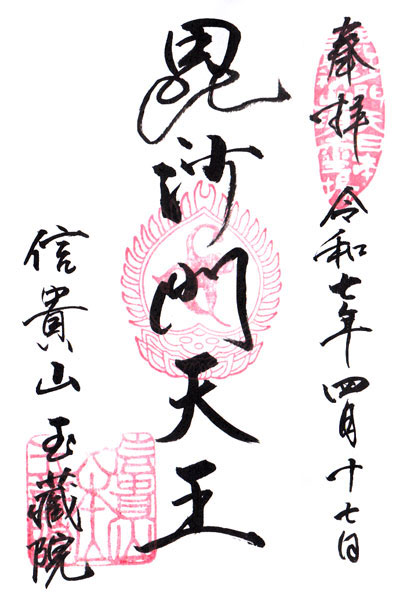 奉拝 令和七年四月十七日
毘沙門天王
信貴山玉蔵院